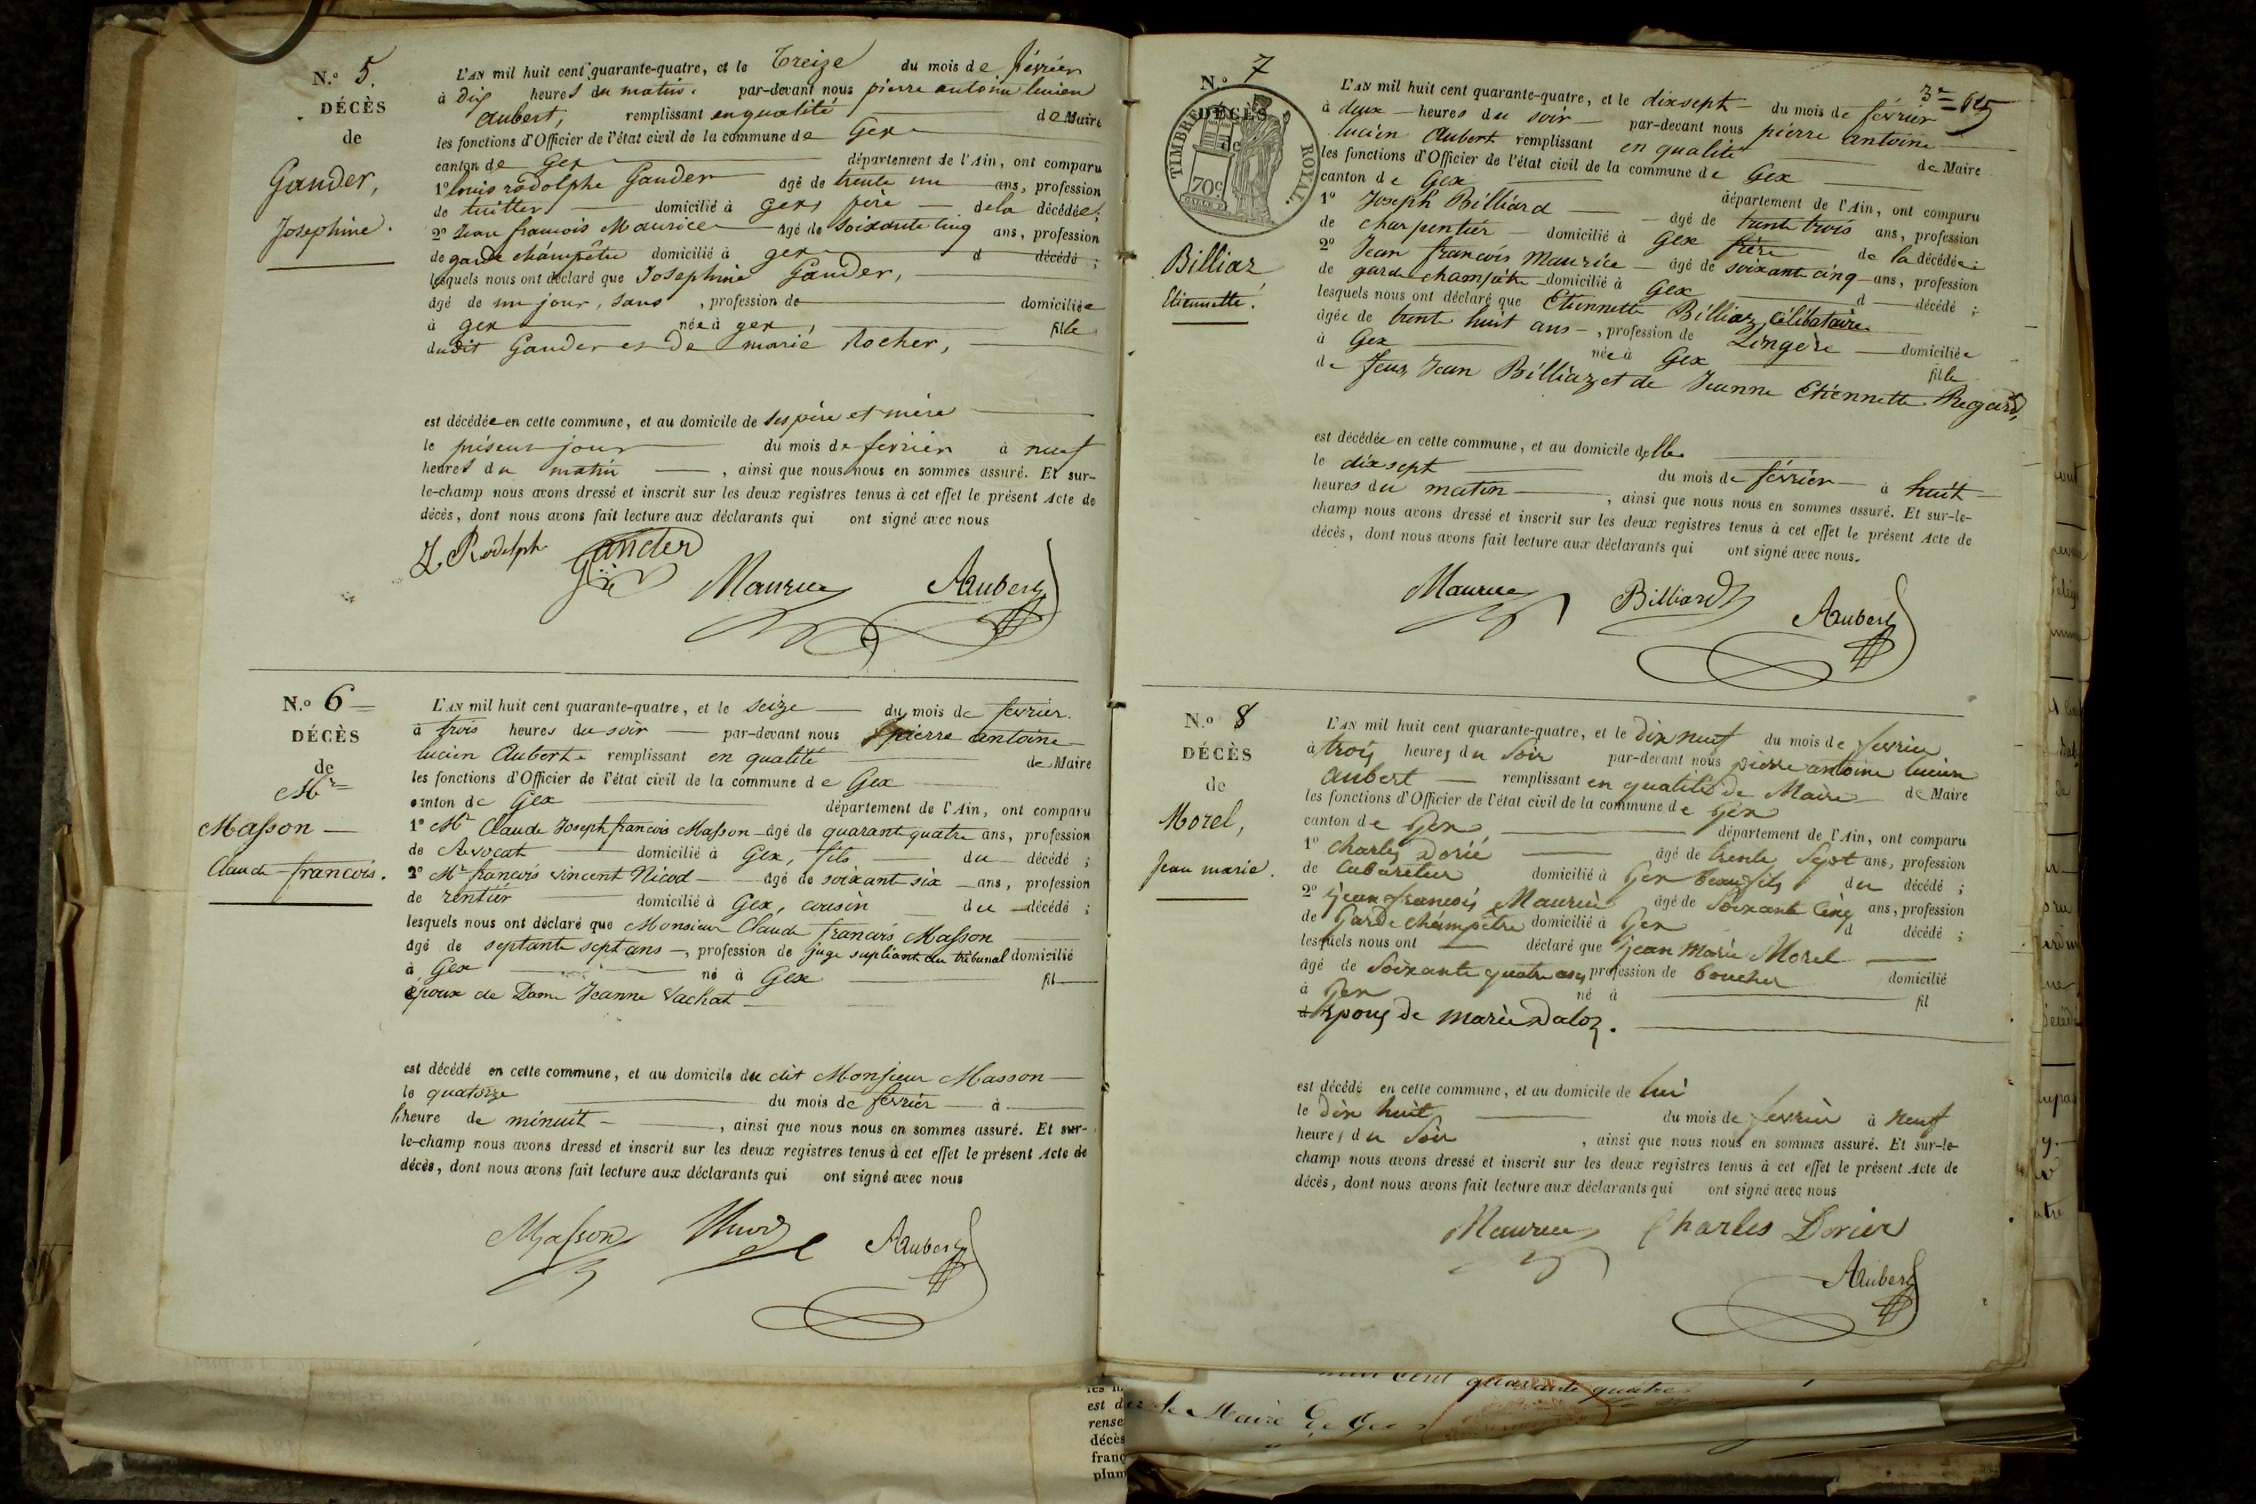 N.º 5.
DÉCÈS
de
Gander,
Josephine.
L'AN mil huit cent quarante-quatre, et le Treize du mois de février
à dix heures du matin. par-devant nous pierre antoine lucien
Aubert, remplissant en qualité de Maire
les fonctions d'Officier de l'état civil de la commune de Gex
canton de Gex département de l'Ain, ont comparu
1º louis rodolphe Gander âgé de trente un ans, profession
de domicilié à gex, père de la décédée;
2º Jean francois Maurice âgé de soixante cinq ans, profession
de garde champêtre domicilié à gex d décédé ;
lesquels nous ont déclaré que Josephine Gander,
âgé de un jour, sans , profession de domiciliée
à gex née à gex, fille
dudit Gander et de marie Rocher,
est décédée en cette commune, et au domicile de ses père et mère
le présent jour du mois de fevrier à neuf
heures du matin , ainsi que nous nous en sommes assuré. Et sur-
le-champ nous avons dressé et inscrit sur les deux registres tenus à cet effet le présent Acte de
décès, dont nous avons fait lecture aux déclarants qui ont signé avec nous
L Rodolph Gander Maurice Aubert
N.º 6
DÉCÈS
de
Mr
Masson
Claude francois.
L'AN mil huit cent quarante-quatre, et le seize du mois de fevrier.
à trois heures du soir par-devant nous pierre antoine
lucien Aubert remplissant en qualité de Maire
les fonctions d'Officier de l'état civil de la commune de Gex
canton de Gex département de l'Ain, ont comparu
1º Mr Claude Joseph francois Masson âgé de quarant quatre ans, profession
de Avocat domicilié à Gex, fils du décédé ;
2º Mr francois vincent Nicod âgé de soixant six ans, profession
de rentiér domicilié à Gex, cousin du décédé ;
lesquels nous ont déclaré que Monsieur Claude francois Masson
âgé de septante sept ans , profession de juge supliant au tribunal domicilié
à Gex né à Gex fil
époux de Dame Jeanne Vachat
est décédé en cette commune, et au domicile du dit Monsieur Masson
le quatorze du mois de fevrier à
l'heure de minuit , ainsi que nous nous en sommes assuré. Et sur-
le-champ nous avons dressé et inscrit sur les deux registres tenus à cet effet le présent Acte de
décès, dont nous avons fait lecture aux déclarants qui ont signé avec nous
Masson Nicod Aubert
N.º 7
DÉCÈS
de
TIMBRE ROYAL.
70c
Billiaz
Etiennette.
L'AN mil huit cent quarante-quatre, et le dix sept du mois de février
à deux heures du soir par-devant nous pierre antoine
lucien Aubert remplissant en qualité de Maire
les fonctions d'Officier de l'état civil de la commune de Gex
canton de Gex département de l'Ain, ont comparu
1º Joseph Billiard âgé de trente trois ans, profession
de charpentiér domicilié à Gex frère de la décédée;
2º Jean francois Maurice âgé de soixant cinq ans, profession
de garde champêtre domicilié à Gex d décédé ;
lesquels nous ont déclaré que Etiennette Billiaz, célibataire
âgée de trente huit ans , profession de Lingère domiciliée
à Gex née à Gex fille
de feux Jean Billiaz et de Jeanne Etiennette Regard,
est décédée en cette commune, et au domicile delle
le dix sept du mois de février à huit
heures du matin , ainsi que nous nous en sommes assuré. Et sur-le-
champ nous avons dressé et inscrit sur les deux registres tenus à cet effet le présent Acte de
décès, dont nous avons fait lecture aux déclarants qui ont signé avec nous.
Maurice Billiard Aubert
N.º 8
DÉCÈS
de
Morel,
Jean marie.
L'AN mil huit cent quarante-quatre, et le dix neuf du mois de fevrier
à trois heures du soir par-devant nous pierre antoine lucien
Aubert remplissant en qualité de Maire de Maire
les fonctions d'Officier de l'état civil de la commune de Gex
canton de Gex, département de l'Ain, ont comparu
1º Charles Dorié âgé de trente sept ans, profession
de Cabaretier domicilié à Gex beau fils du décédé ;
2º Jean francois Maurice âgé de soixante cinq ans, profession
de Garde Champêtre domicilié à Gex d décédé ;
lesquels nous ont déclaré que Jean Marie Morel
âgé de soixante quatre ans profession de boucher domicilié
à Gex né à fil
Epoux de Marie Daloz.
est décédé en cette commune, et au domicile de lui
le dix huit du mois de fevrier à neuf
heures du soir , ainsi que nous nous en sommes assuré. Et sur-le-
champ nous avons dressé et inscrit sur les deux registres tenus à cet effet le présent Acte de
décès, dont nous avons fait lecture aux déclarants qui ont signé avec nous
Maurice Charles Dorier
Aubert
cent quarante quatre
le Maire de Gex
est d
rense
décès
franç
plum